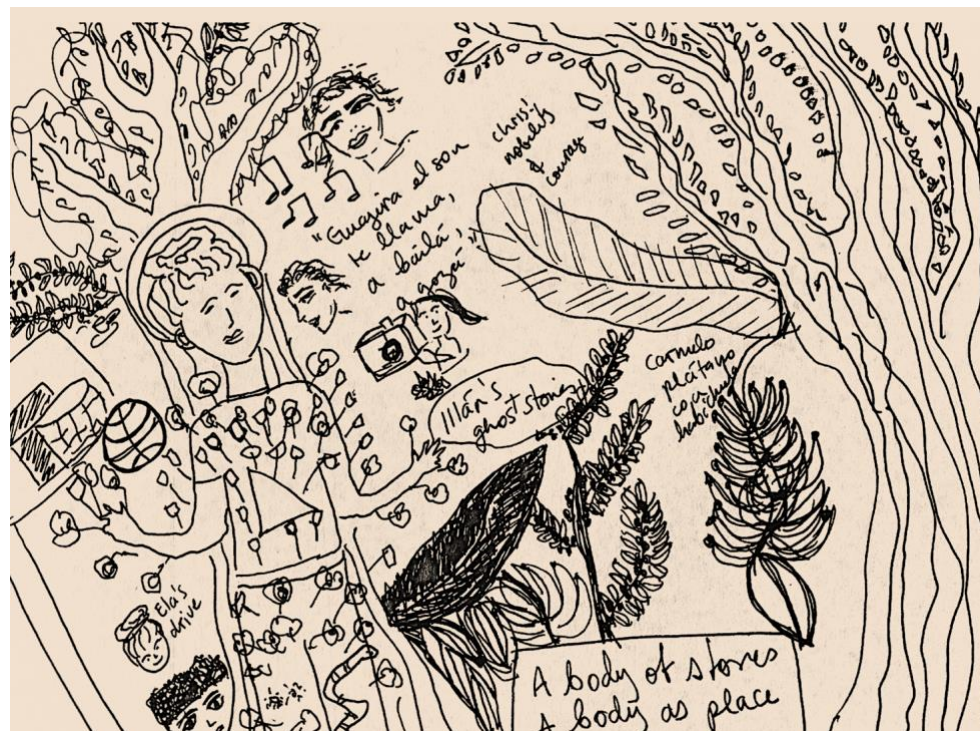 "Guajira el son
te llama,
a bailá,
a gozá"
Chris'
nobility
&
Illán's
ghost stories
carmelo
plátano
Ela's
drive
A body of stories
A body as place